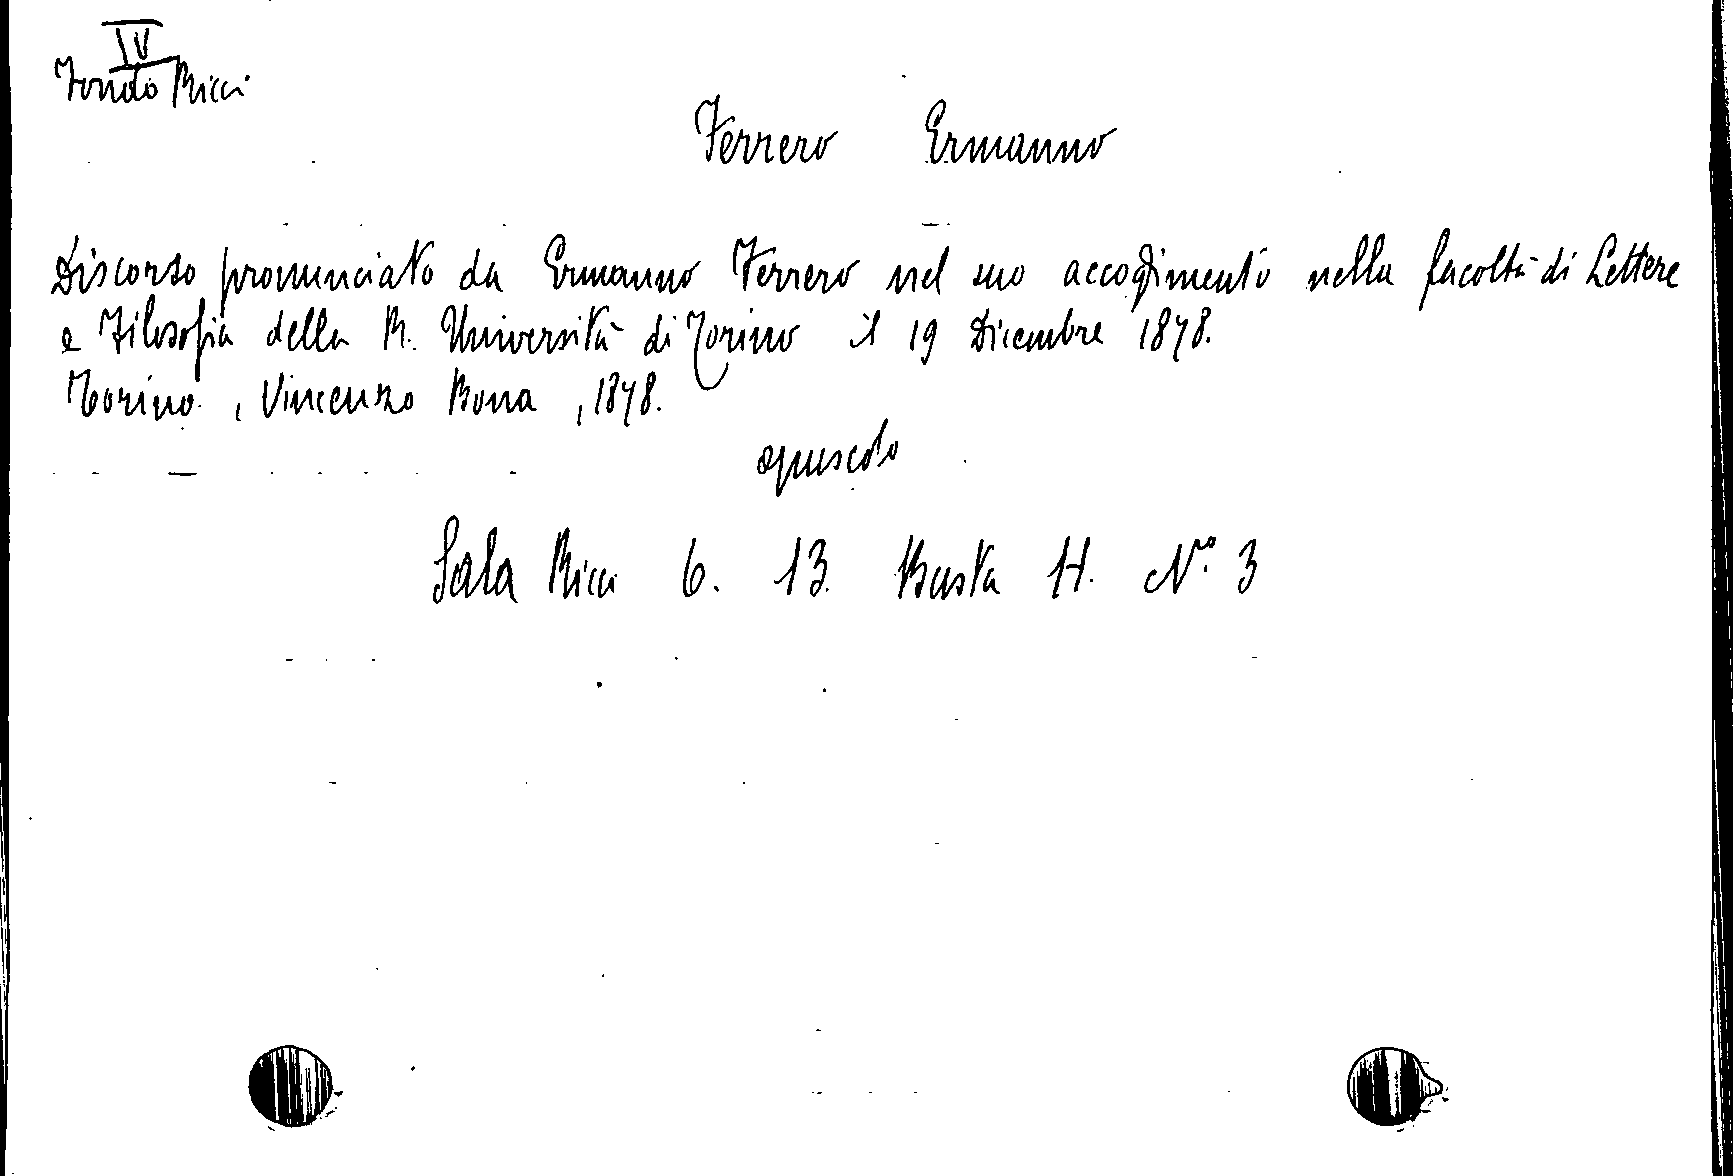 IV
Fondo Ricci
Ferrero Ermanno
Discorso pronunciato da Ermanno Ferrero nel suo accoglimento nella facoltà di Lettere
e Filosofia della R. Università di Torino il 19 Dicembre 1878.
Torino, Vincenzo Bona, 1878.
opuscolo
Sala Ricci 6. 13. Busta H. N.° 3